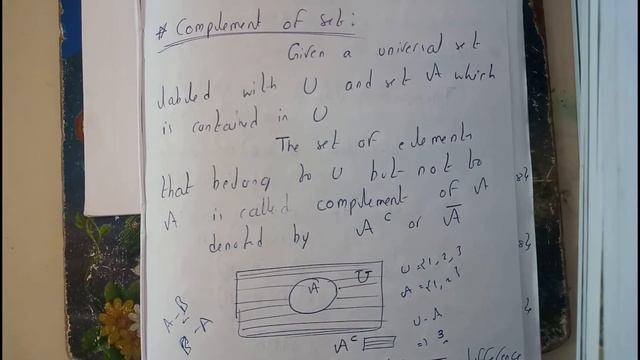 # Complement of set:
Given a universal set
labeled with U and set A which
is contained in U
The set of elements
that belong to U but not to
A is called complement of A
denoted by Aᶜ or A̅
U
A
U = {1, 2, 3
A = {1, 2}
U - A
= 3
A - B
B - A
Aᶜ
difference